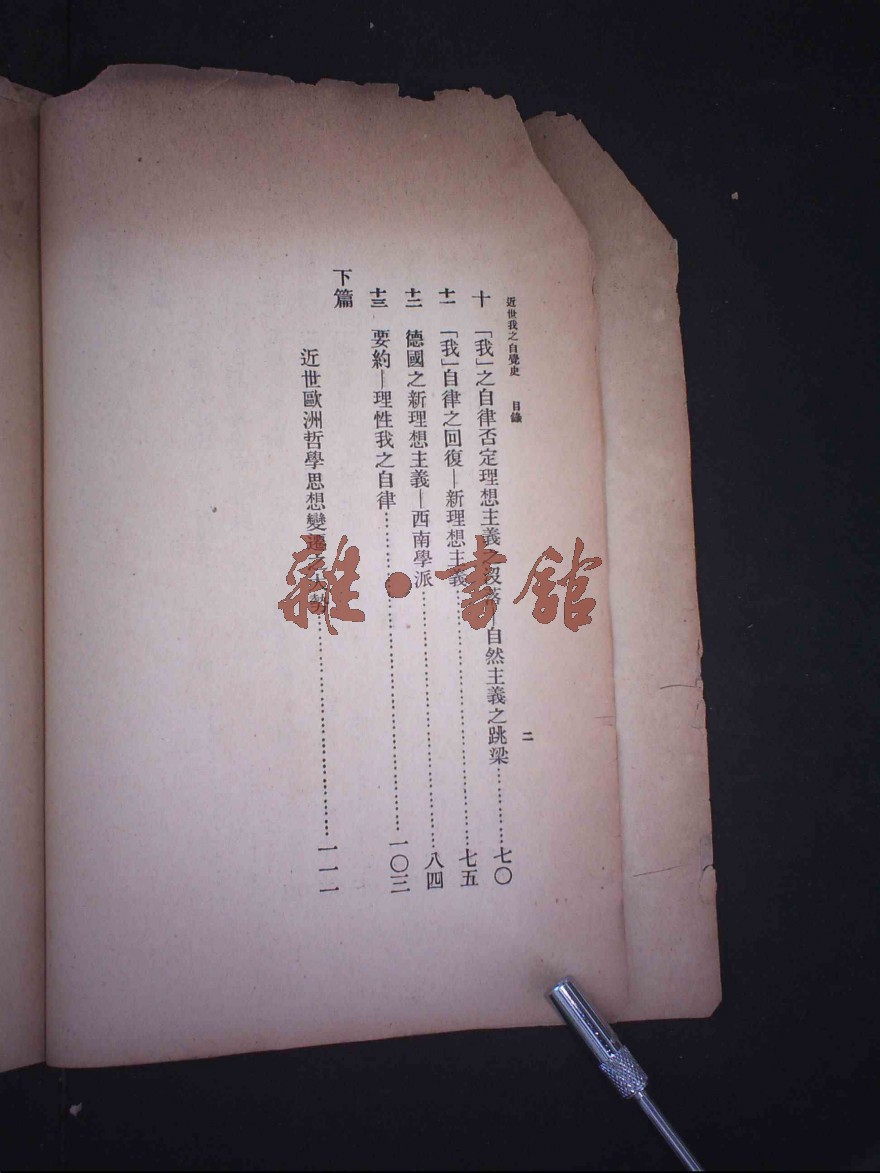 近世我之自覺史 目錄 二
十 「我」之自律否定理想主義之沒落—自然主義之跳梁……………七〇
十一 「我」自律之回復—新理想主義……………七五
十二 德國之新理想主義—西南學派……………八四
十三 要約—理性我之自律……………一〇三
下篇
近世歐洲哲學思想變遷之大勢……………一一一
雜·書館